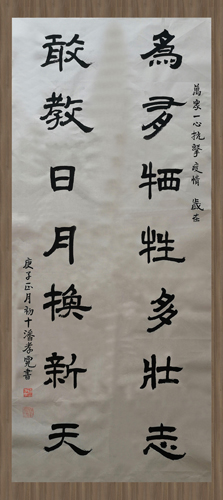 為有牺牲多壯志
敢教日月換新天
萬眾一心抗擊疫情 歲在
庚子正月初十潘孝寬書